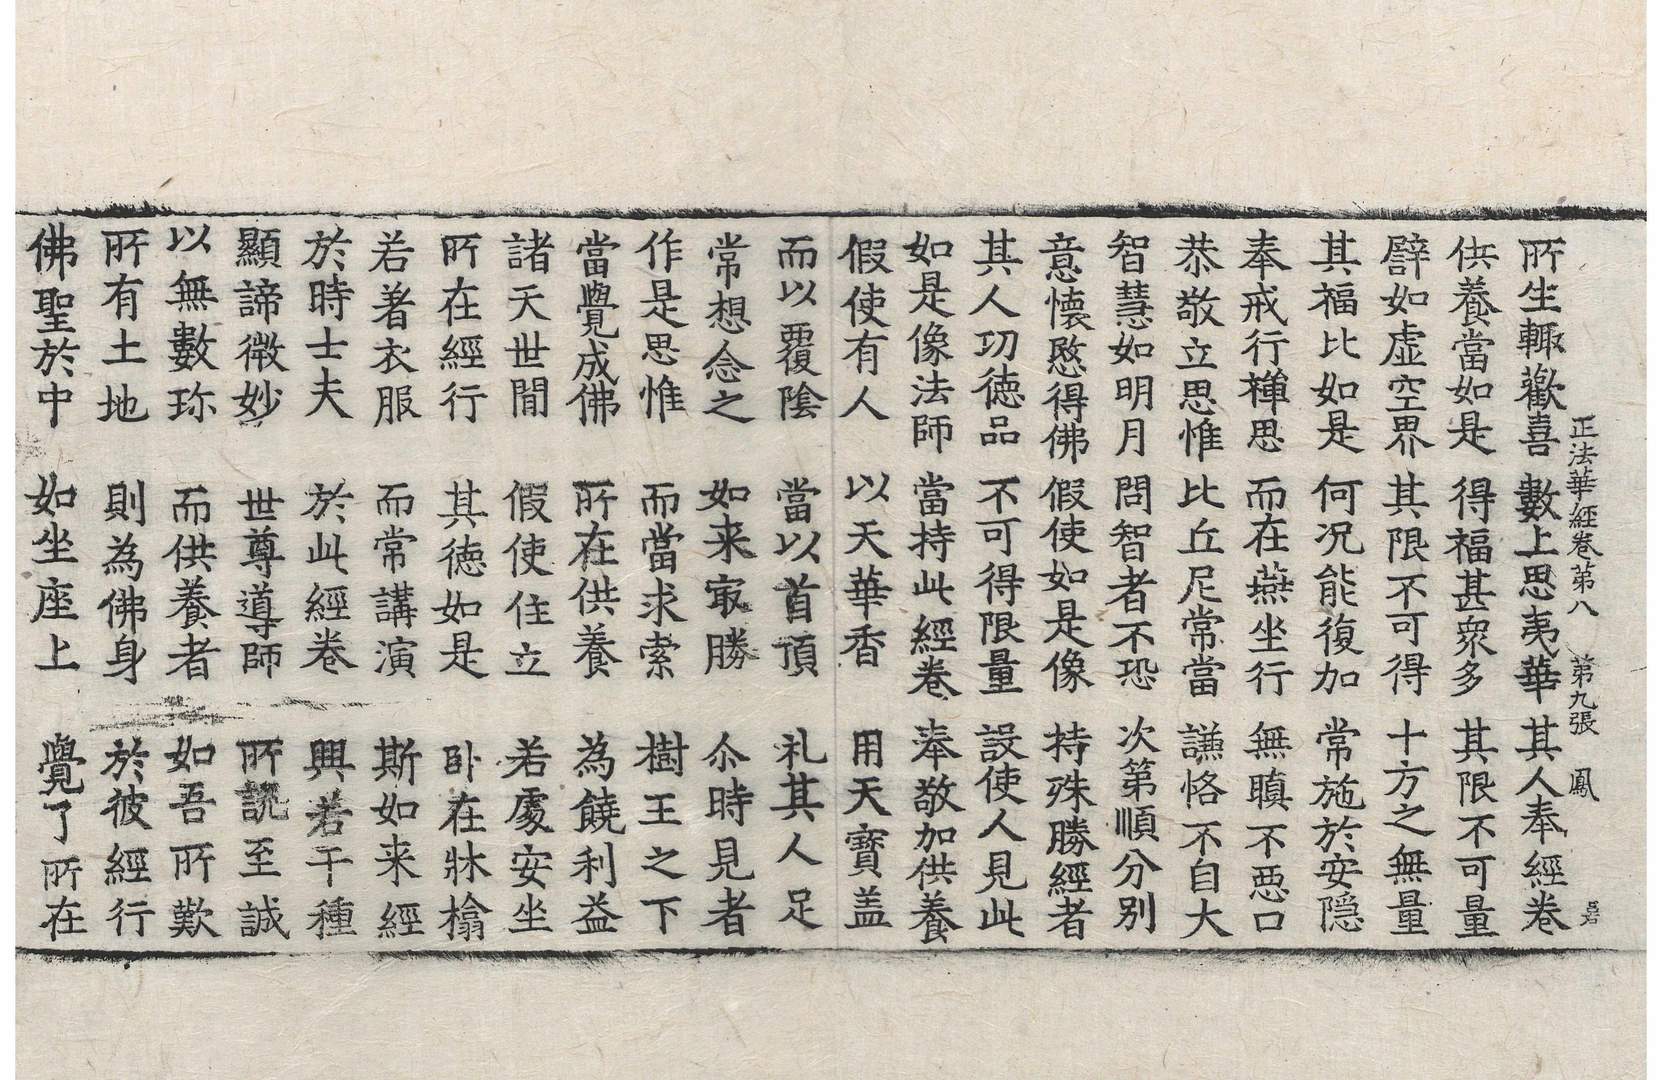 正法華経巻第八 第九張 鳳
所生輙歡喜 數上思夷華 其人奉經卷
供養當如是 得福甚衆多 其限不可量
譬如虛空界 其限不可得 十方之無量
其福比如是 何况能復加 常施於安隱
奉戒行禪思 而在燕坐行 無瞋不悪口
恭敬立思惟 比丘尼常當 謙恪不自大
智慧如明月 問智者不恐 次第順分别
意懐愍得佛 假使如是像 持殊勝經者
其人功德品 不可得限量 設使人見此
如是像法師 當持此經卷 奉敬加供養
假使有人 以天華香 用天寶盖
而以覆陰 當以首頂 礼其人足
常想念之 如来㝡勝 尒時見者
作是思惟 而當求索 樹王之下
當覺成佛 所在供養 為饒利益
諸天世間 假使住立 若處安坐
所在經行 其德如是 卧在牀榻
若著衣服 而常講演 斯如来經
於時士夫 於此經卷 興若干種
顯諦微妙 世尊導師 所說至誠
以無數珎 而供養者 如吾所歎
所有土地 則為佛身 於彼經行
佛聖於中 如坐座上 覺了所在